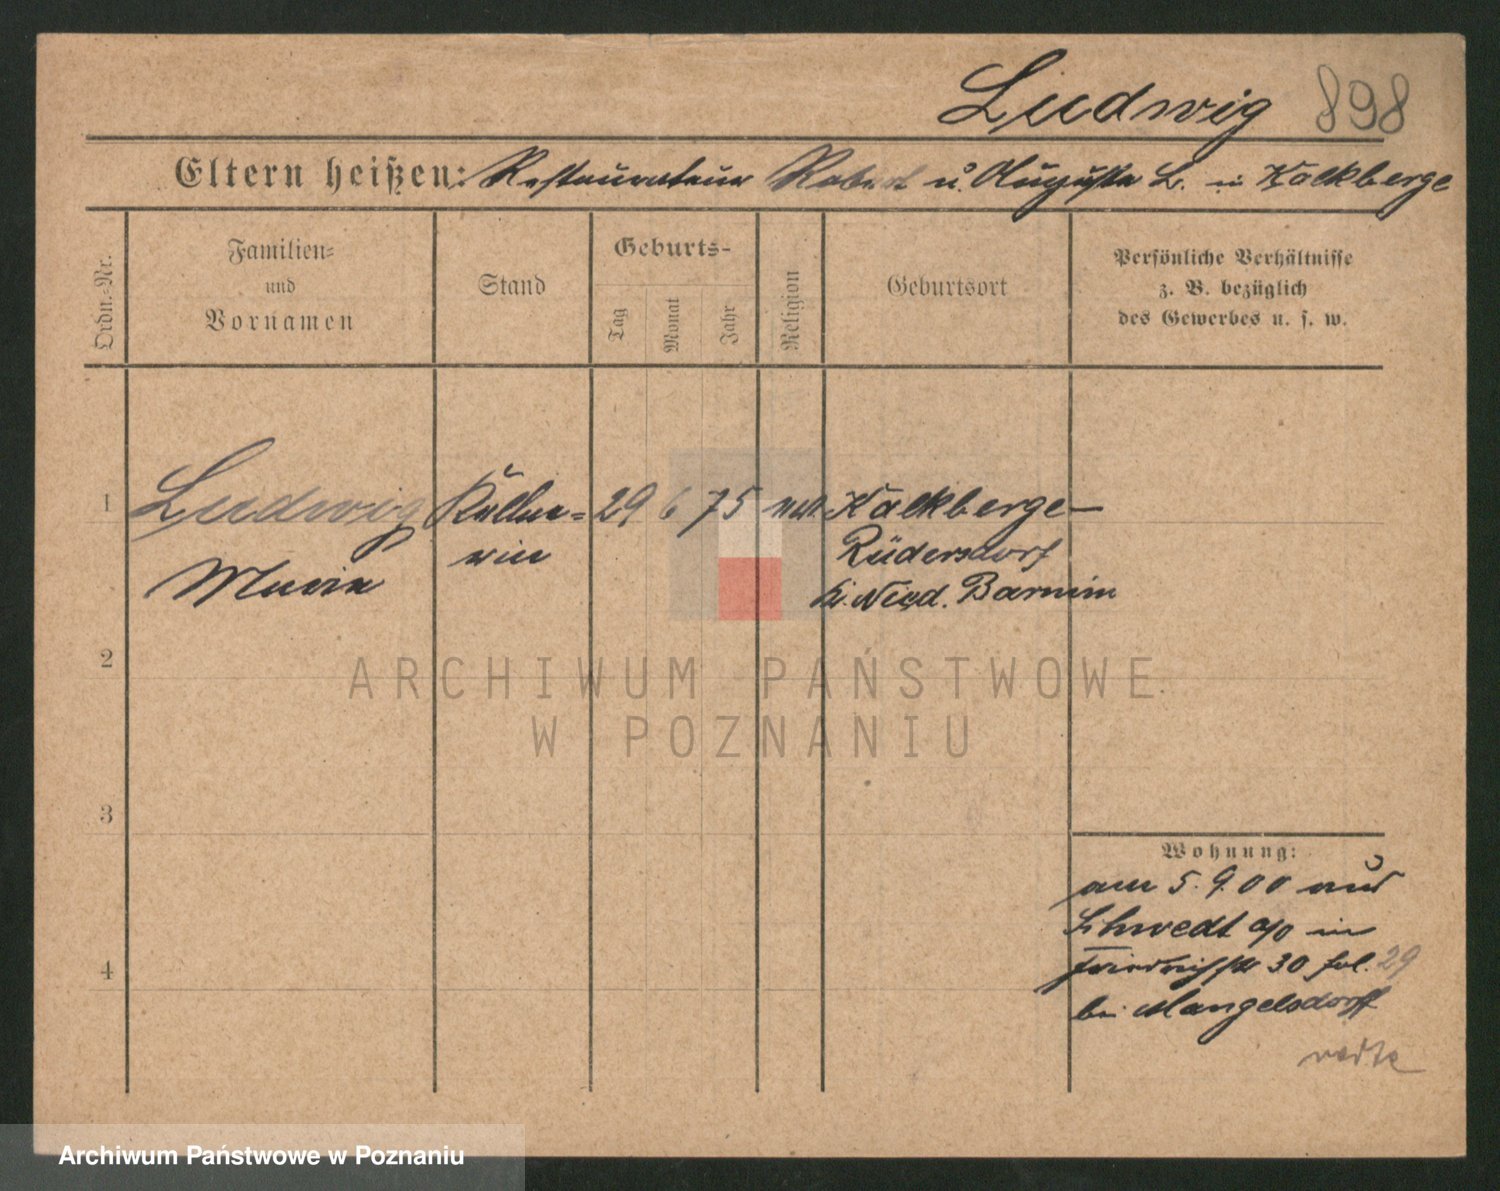 Ludwig 898
Eltern heißen: Restaurateur Robert u. Auguste L. in Kalkberge
Ordn.-Nr.
Familien-
und
Vornamen
Stand
Geburts-
Tag
Monat
Jahr
Religion
Geburtsort
Persönliche Verhältnisse
z. B. bezüglich
des Gewerbes u. s. w.
1 Ludwig Kellne= 29 6 75 Kalkberge-
Marie rin Rüdersdorf
Kr. Nied. Barnim
2
ARCHIWUM PAŃSTWOWE
W POZNANIU
3
Wohnung:
am 5.9.00 aus
Schwedt a/o in
4 Friedrichstr 30 29
bei Mangelsdorff
Archiwum Państwowe w Poznaniu